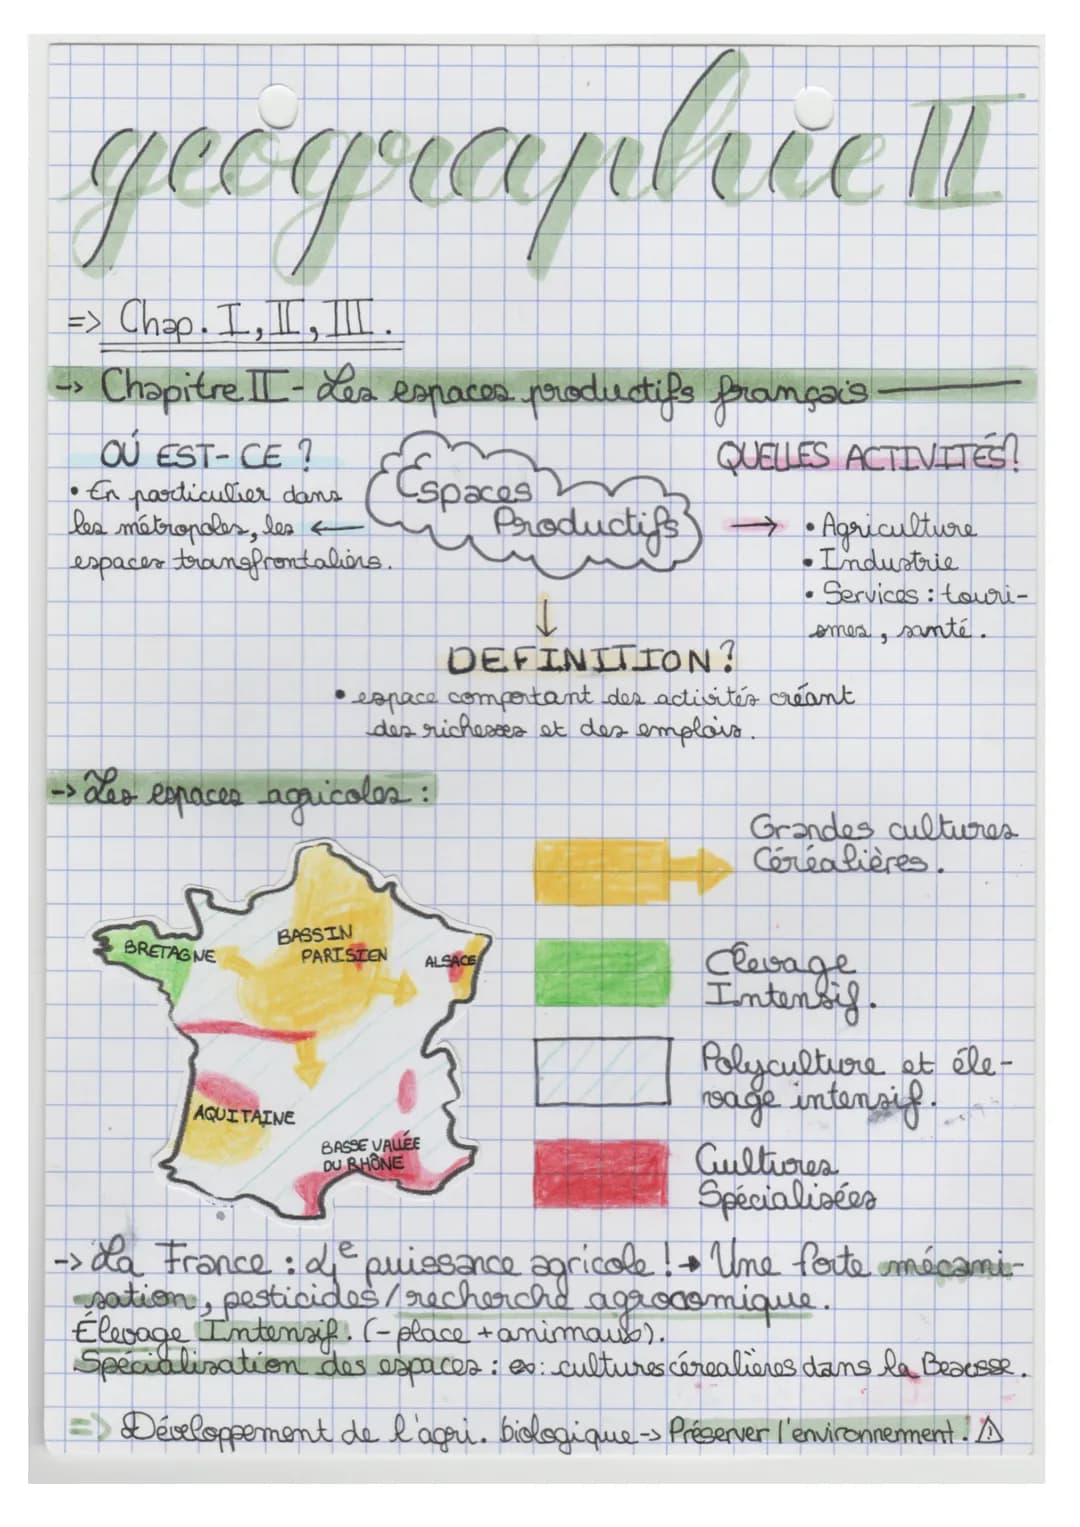 geographie II
=> Chap. I, II, III.
-> Chapitre II - Les espaces productifs français
OÚ EST-CE ?
• En particulier dans
les métropoles, les
espaces transfrontaliers.
Espaces
Productifs
QUELLES ACTIVITÉS?
• Agriculture
• Industrie
• Services : touri-
smes, santé.
DEFINITION?
• espace comportant des activités créant
des richesses et des emplois.
-> Les espaces agricoles :
BRETAGNE
BASSIN
PARISIEN
ALSACE
AQUITAINE
BASSE VALLÉE
DU RHÔNE
Grandes cultures
Céréalières.
Élevage
Intensif.
Polyculture et éle-
vage intensif.
Cultures
Spécialisées
-> La France : 4e puissance agricole ! → Une forte mécani-
sation, pesticides / recherche agrocomique.
Élevage Intensif. (- place + animaux).
Spécialisation des espaces : ex: cultures céréalières dans la Beausse.
=> Développement de l'agri. biologique -> Préserver l'environnement. ⚠